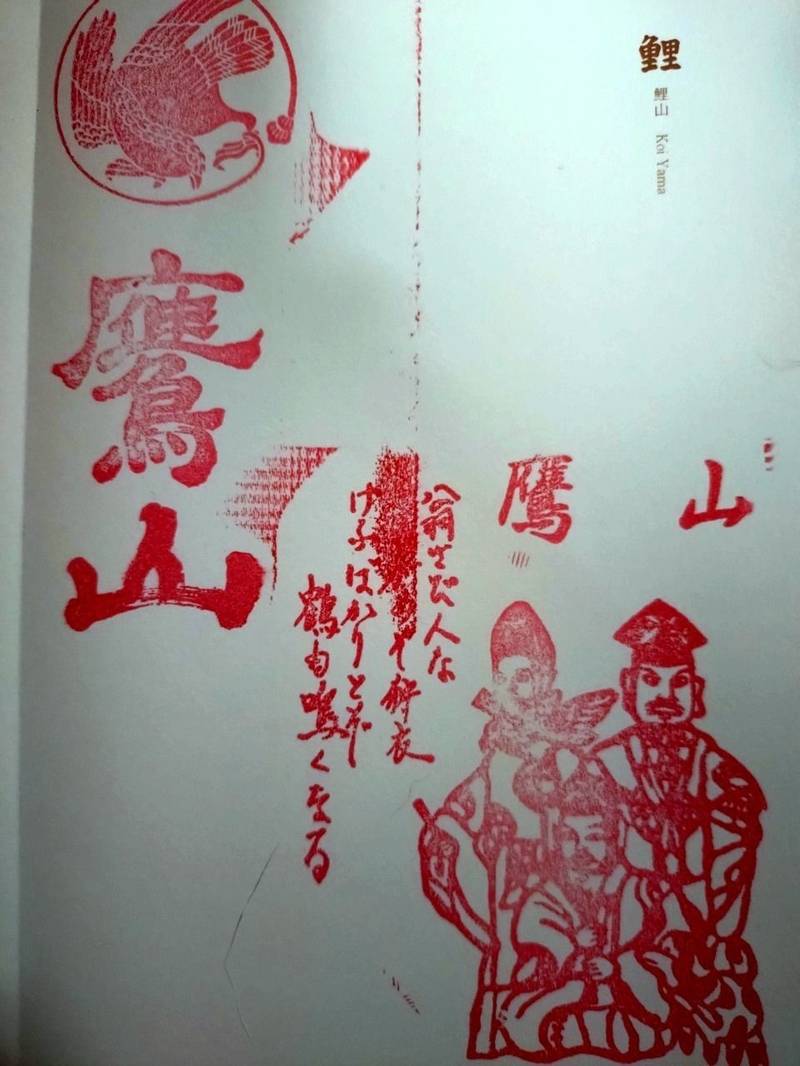 鯉
鯉山 Koi Yama
鷹山
翁さび人な
そ狩衣
けふはかりとそ
鶴も鳴くなる
鷹山